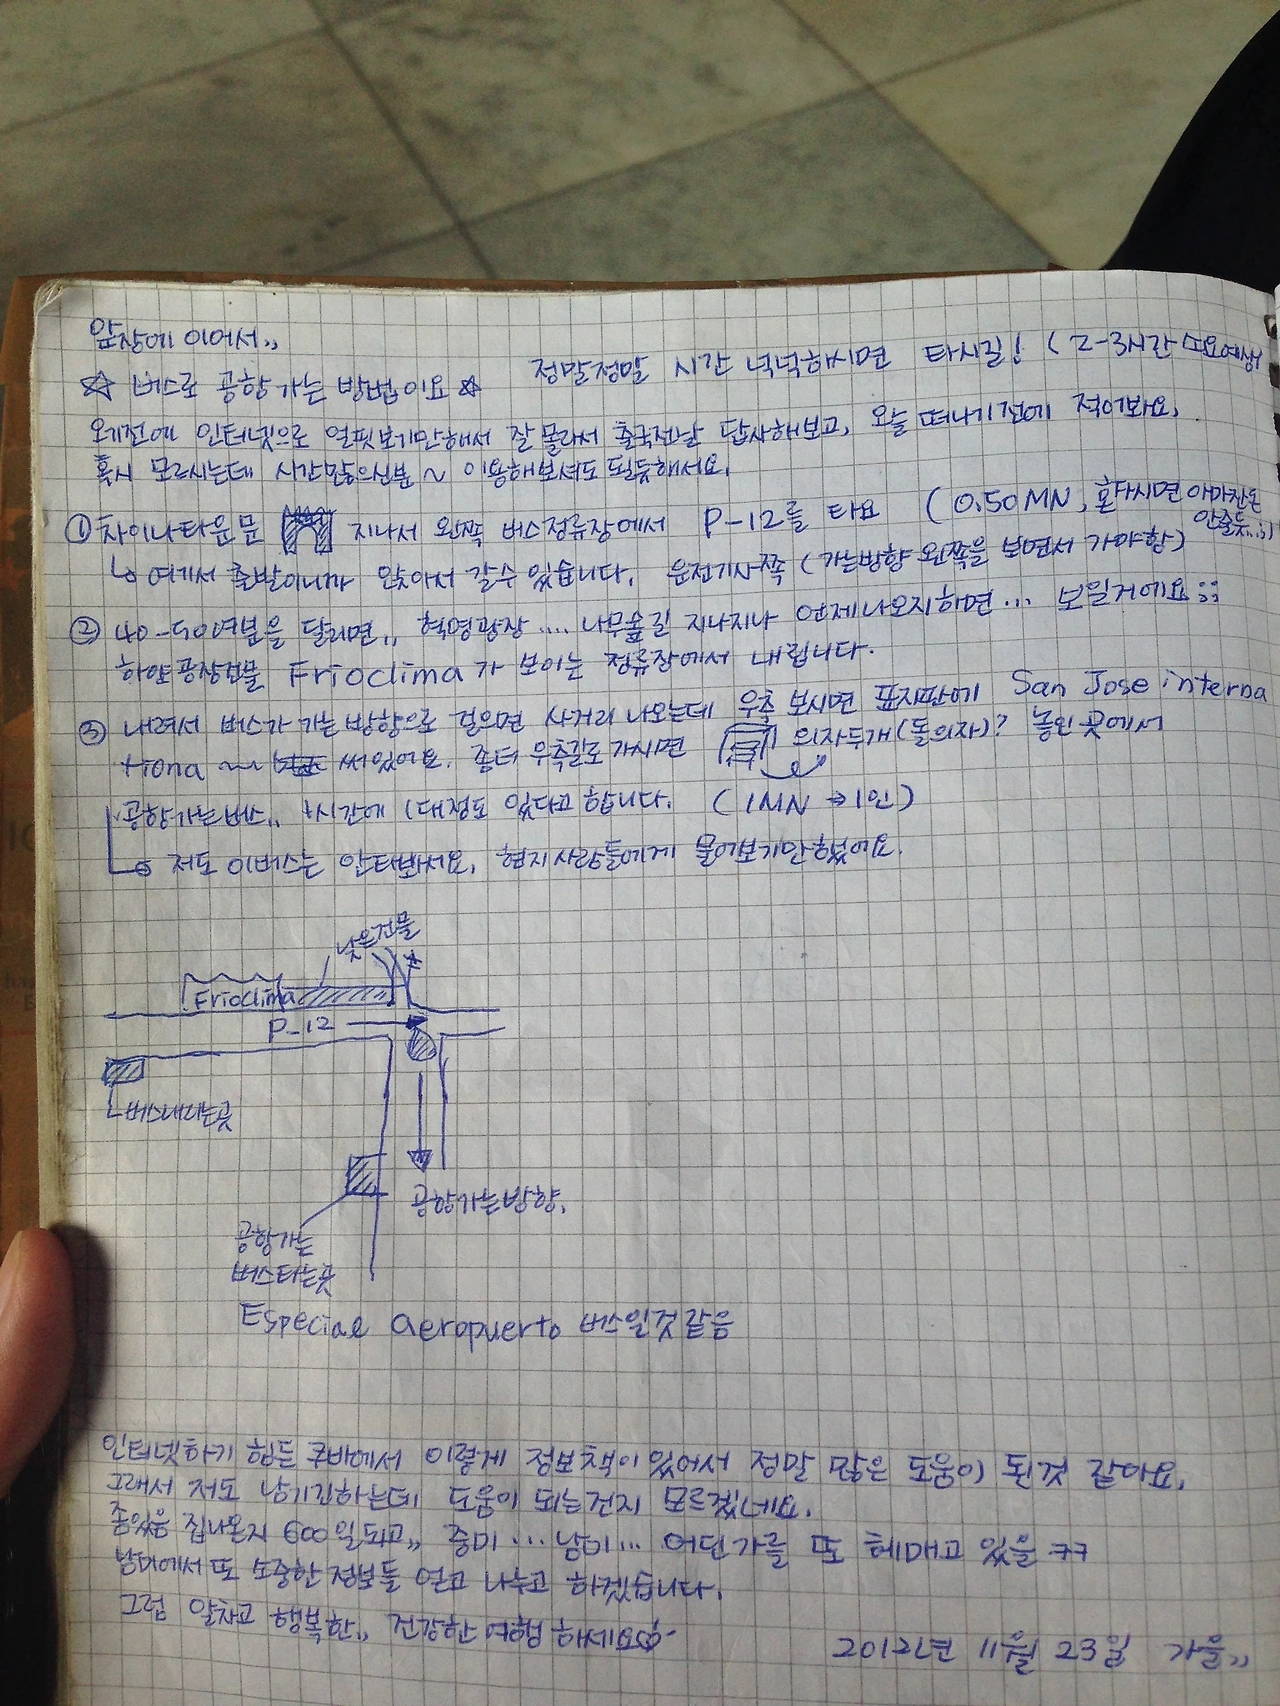 앞장에 이어서,,
정말정말 시간 넉넉하시면 타시길! (2-3시간 소요예상
☆ 버스로 공항가는 방법이요 ☆
오기전에 인터넷으로 얼핏보기만해서 잘 몰라서 출국전날 답사해보고, 오늘 떠나기전에 적어봐요.
혹시 모르시는데 시간많으신분 ~ 이용해보셔도 될듯해서요.
① 차이나타운 문 지나서 왼쪽 버스정류장에서 P-12를 타요 (0.50MN, 혼타시면 아마잔돈 안줄듯..;;)
↳ 여기서 출발이니까 앉아서 갈수 있습니다. 운전기사쪽 (가는방향 왼쪽을 보면서 가야함)
② 40-50여분을 달리면,, 혁명광장 .... 나무숲길 지나지나 언제나오지하면... 보일거에요 ;;
하얀공장건물 Frioclima가 보이는 정류장에서 내립니다.
③ 내려서 버스가 가는 방향으로 걸으면 사거리 나오는데 우측 보시면 표지판에 San Jose interna
tiona ~~ 써있어요. 좀더 우측길로 가시면 의자두개(돌의자)? 놓인 곳에서
공항가는버스,, 1시간에 1대정도 있다고 합니다. (1MN → 1인)
↳ 저도 이버스는 안타봐서요. 현지사람들에게 물어보기만했어요.
낮은건물
Frioclima
P-12
버스내리는곳
공항가는방향.
공항가는
버스타는곳
Especial aeropuerto 버스일것같음
인터넷하기 힘든 쿠바에서 이렇게 정보책이 있어서 정말 많은 도움이 된것 같아요.
그래서 저도 남기긴하는데 도움이 되는건지 모르겠네요.
좀있음 집나온지 600일되고,, 중미 ... 남미... 어딘가를 또 헤매고 있을 ㅋㅋ
남미에서 또 소중한 정보들 얻고 나누고 하겠습니다.
그럼 알차고 행복한,, 건강한 여행 하세요
2012년 11월 23일 가을,,